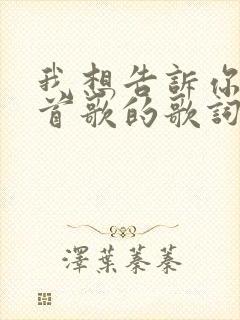 我想告訴你
首歌的歌詞
澤葉蓁蓁